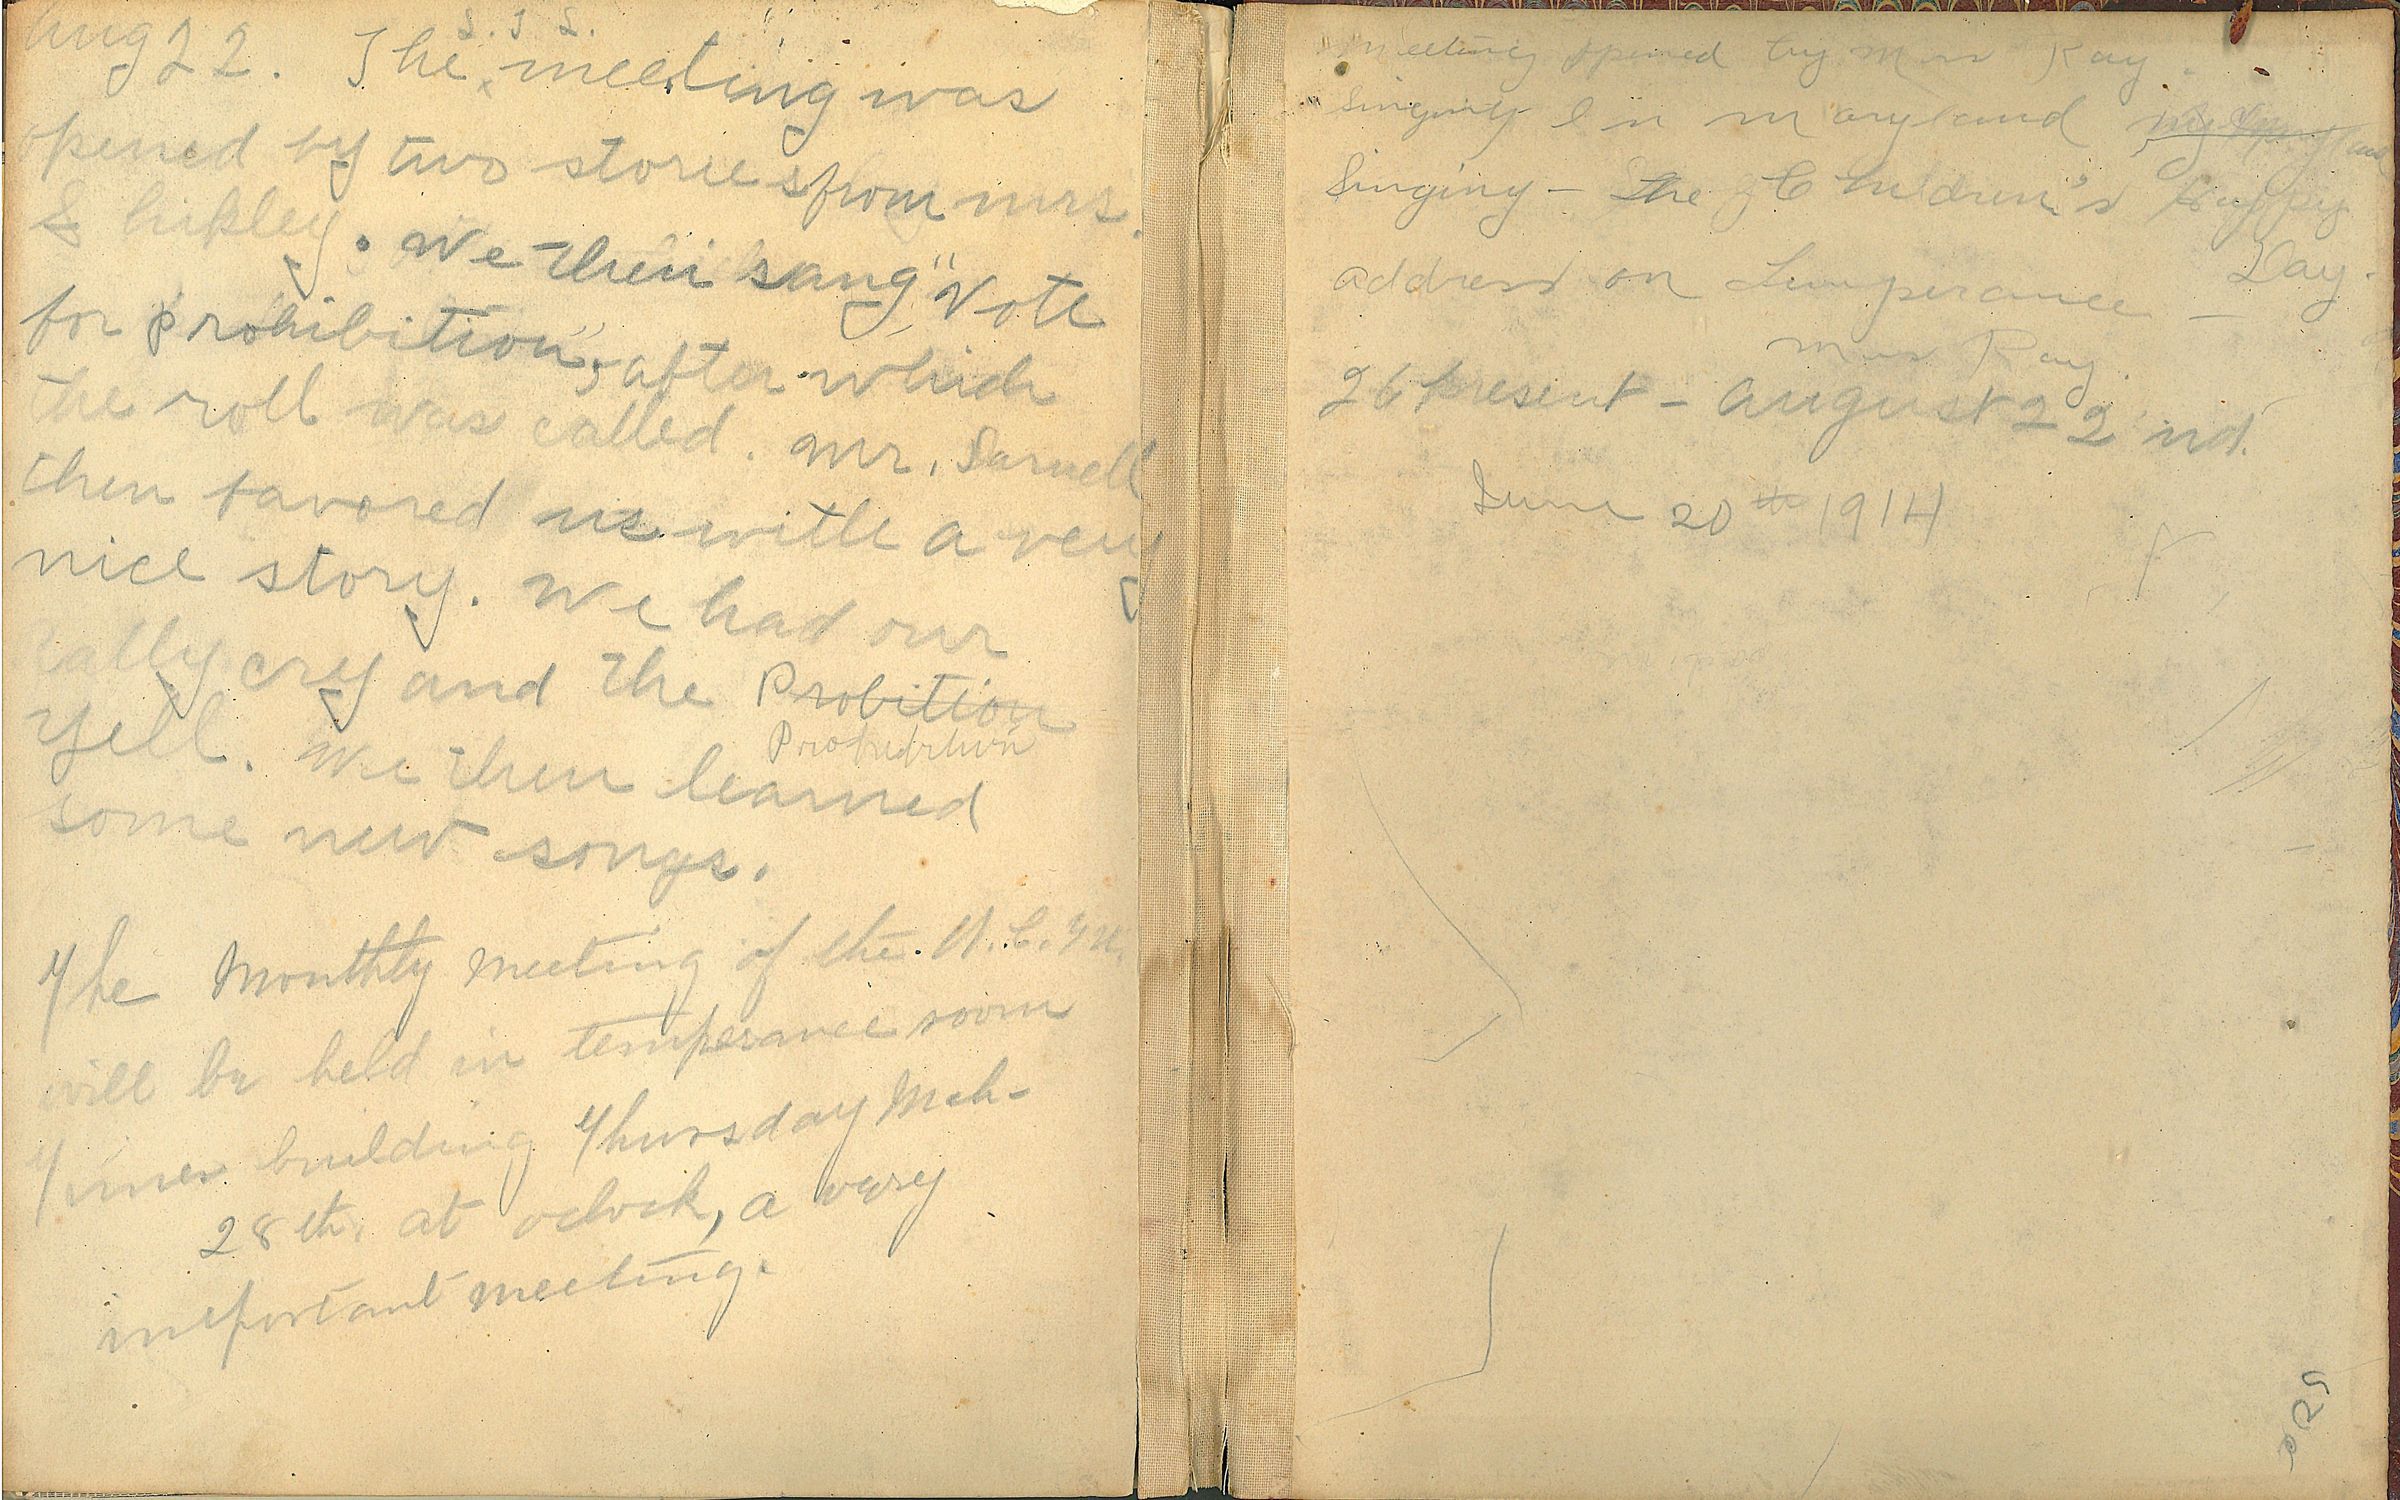 Aug 22. The S. T. S. meeting was
opened by two stories from mrs.
Shipley. We then sang "Vote
for prohibition", after which
the roll was called. Mr. Sarnell
then favored us with a very
nice story. We had our
rally cry and the Probition
Prohibition
Yell. We then learned
some new songs.
The Monthly Meeting of the W. C. T. U.
will be held in temperance room
Times building Thursday Mch-
28th. at oclock, a very
important meeting.
Meeting opened by Mrs Ray.
Singing In Maryland
Singing - The Children's Happy
Day.
Address on Temperance -
Mrs Ray.
26 present - August 22nd.
June 20th 1914